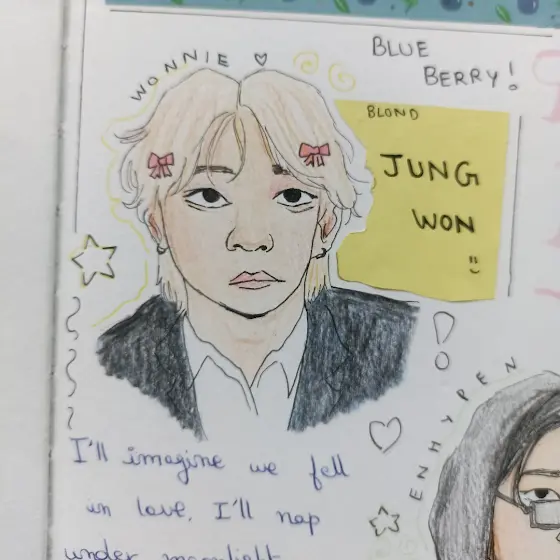 WONNIE ♡
BLUE
BERRY!
BLOND
JUNG
WON
ENHYPEN
I'll imagine we fell
in love, I'll nap
under moonlight